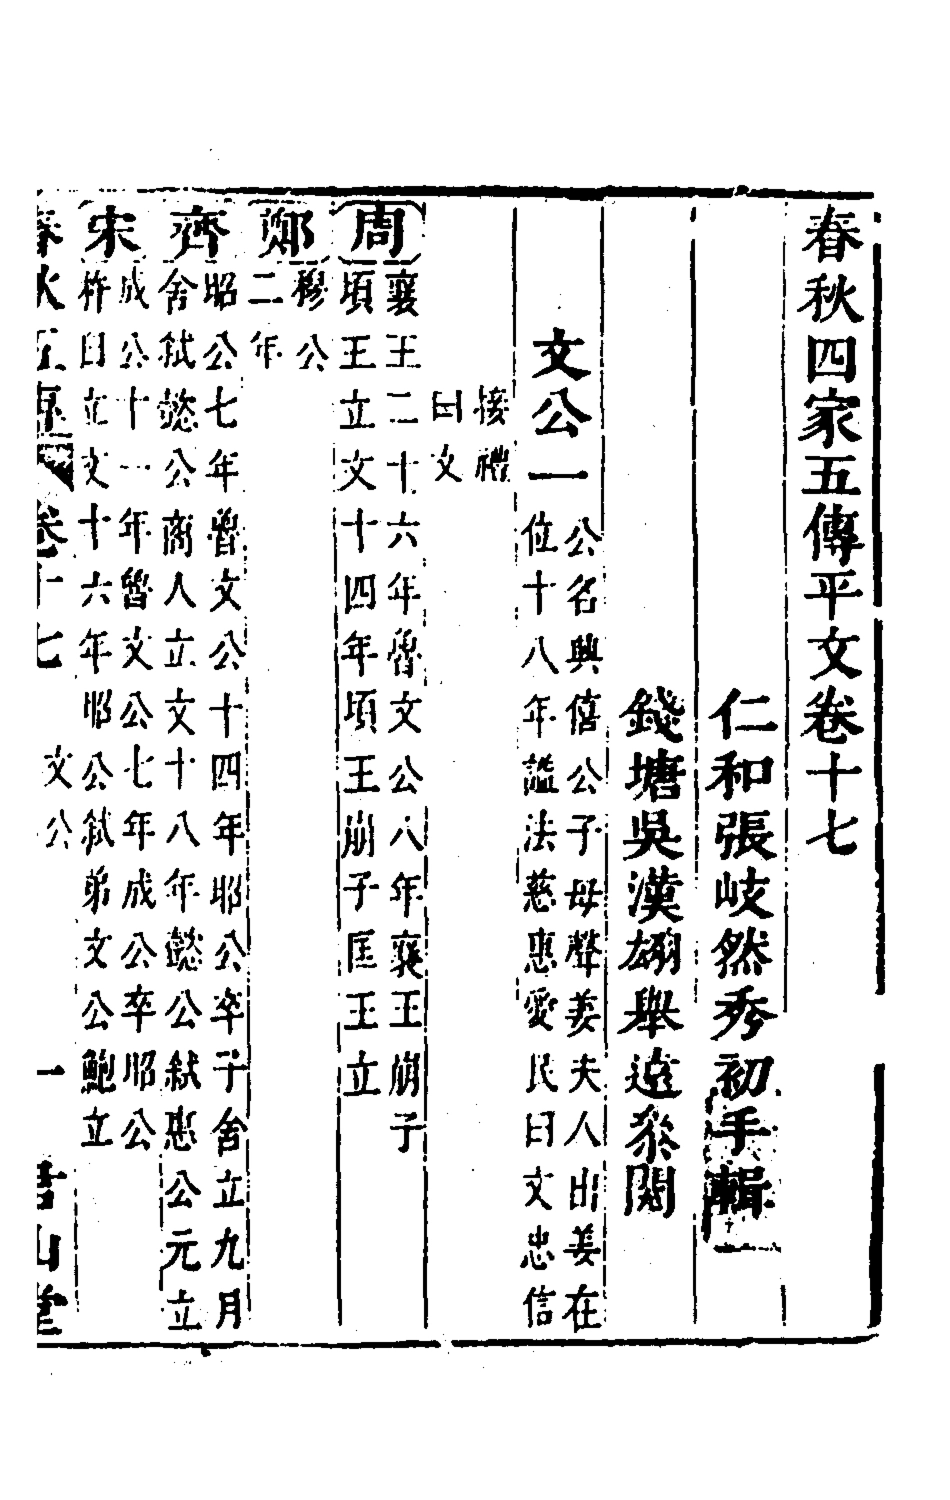 春秋四家五傳平文卷十七
仁和張岐然秀初手輯
錢塘吳漢翊舉遠叅閱
文公一
公名興僖公子母聲姜夫人出姜在
位十八年謚法慈惠愛民曰文忠信
接禮
曰文
周
襄王二十六年魯文公八年襄王崩子
頃王立文十四年頃王崩子匡王立
鄭
穆公
二年
齊
昭公七年魯文公十四年昭公卒子舍立九月
舍弒懿公商人立文十八年懿公弒惠公元立
宋
成公十一年魯文公七年成公卒昭公
杵臼立文十六年昭公弒弟文公鮑立
春秋五傳 卷十七 文公 一